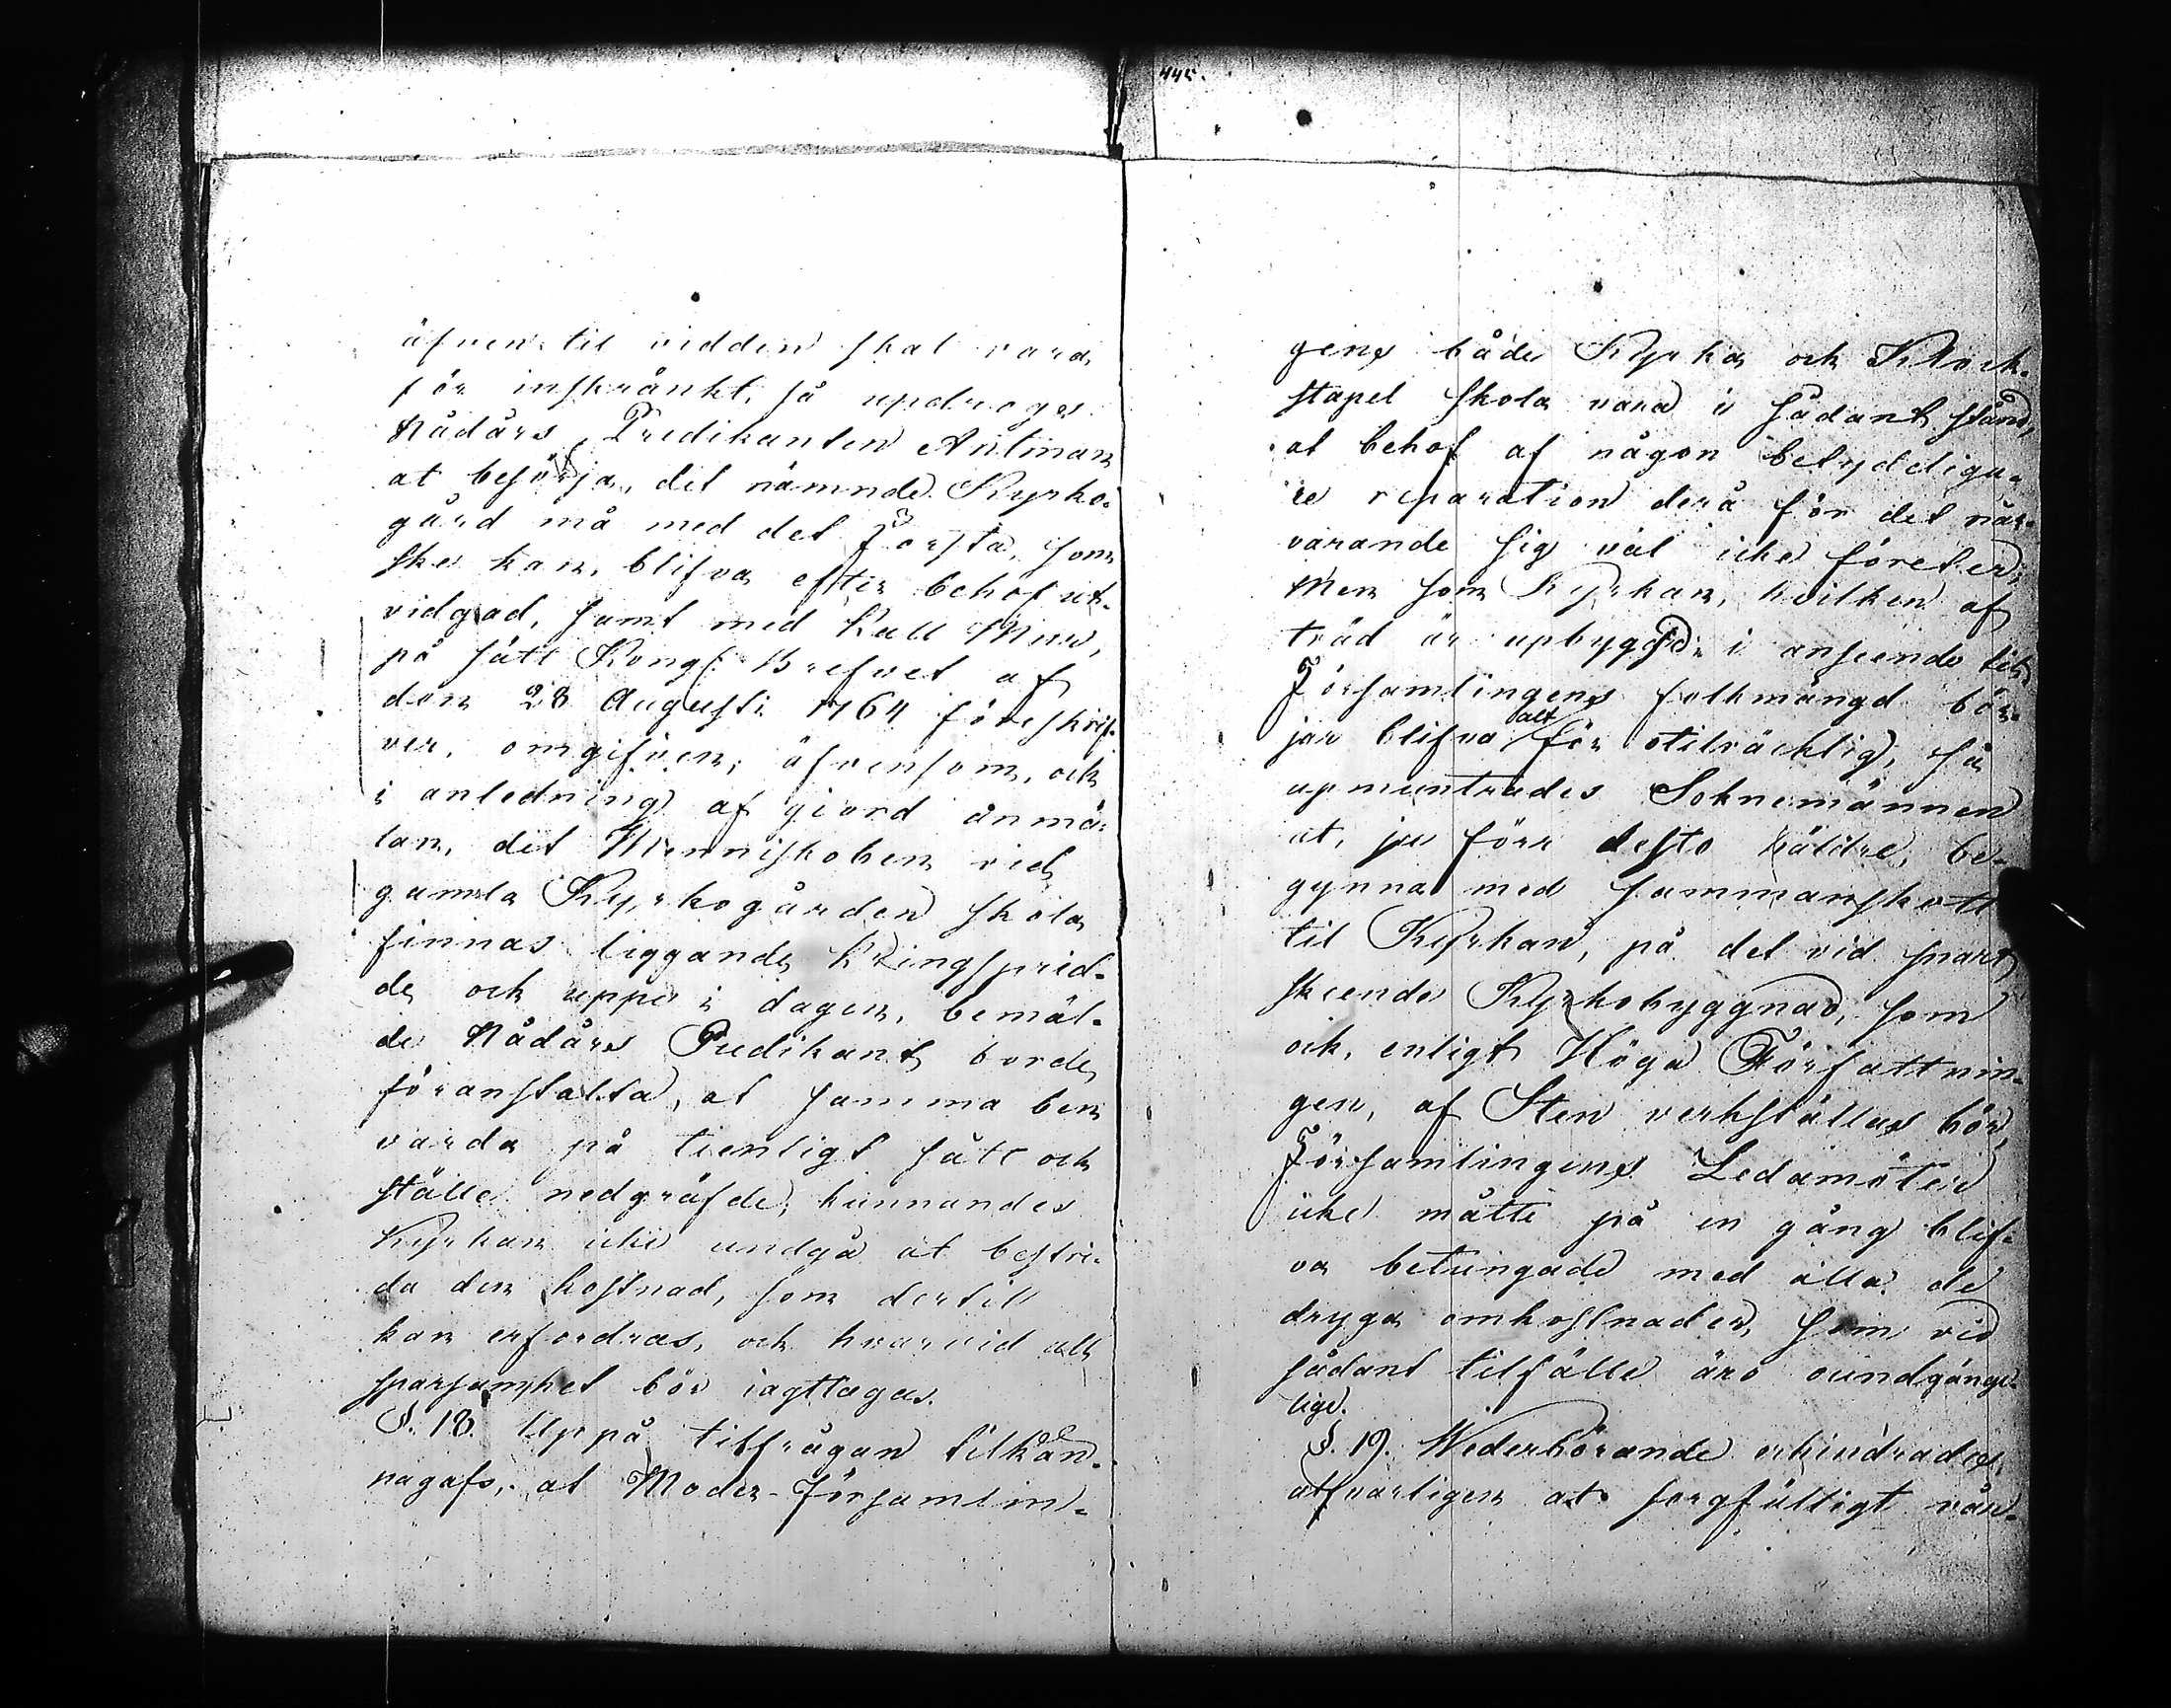 äfven til vidden skal vara
för inskränkt, så updroges
Nådårs Predikanten Antman
at besörja, det nämnde Kyrko-
gård må med det första, som
ske kan, blifva efter behof ut-
vidgad, samt med kall Mur,
på sätt Kongl. Brefvet af
den 28 Augusti 1764 föreskrif-
ver, omgifven; äfvensom, och
i anledning af giord anmä-
lan, det Menniskoben vid
gamla Kyrkogården skola
finnas liggande kringsprid-
de och uppe i dagen, bemäl-
de Nådårs Predikant borde
föranstalta, at samma ben
varda på tienligt sätt och
ställe nedgräfde, kunnandes
Kyrkan icke undgå at bestri-
da den kostnad, som dertill
kan erfordras, och hvarvid all
sparsamhet bör iagttagas.
§. 18. Uppå tilfrågan tilkän-
nagafs, at Moder-Församlin-
445.
gens både Kyrka och Klock-
stapel skola vara i sådant stånd,
at behof af någon betydliga-
re reparation derå för det när-
varande sig väl icke företer;
Men som Kyrkan, hvilken af
träd är upbygd, i anseende til
Församlingens folkmängd bör-
jar blifva alt för otilräcklig, så
upmuntrades Soknemännen
at, ju förr desto häldre, be-
gynna med sammanskott
til Kyrkan, på det vid snart
skeende Kyrkobyggnad, som
ock, enligt Höga Författnin-
gen, af Sten verkställas bör,
Församlingens Ledamöter
icke måtte på en gång blif-
va betungade med alla de
dryga omkostnader, som vid
sådant tilfälle äro oundgänge-
lige.
§. 19. Wederbörande erhindrades
alfvarligen at sorgfälligt vån-